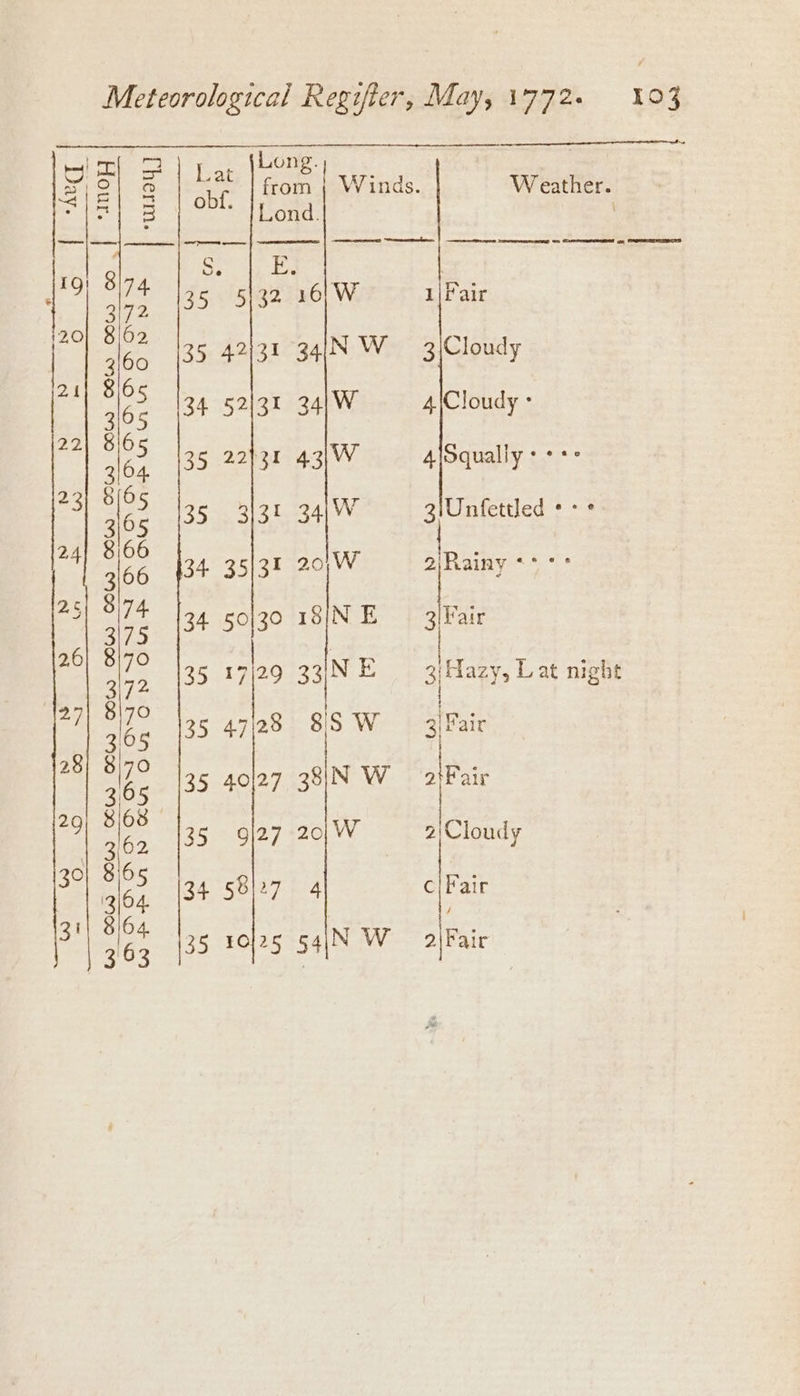 Meteorological Regiſter, May, 1772. 103
Day. Hour. Therm. Lat obſ. Long. from Lond. Winds. Weather.
S. E.
19 8 74 35 5 32 16 W 1 Fair
3 72
20 8 62 35 42 31 34 N W 3 Cloudy
3 60
21 8 65 34 52 31 34 W 4 Cloudy ·
3 65
22 8 65 35 22 31 43 W 4 Squally · · · ·
3 64
23 8 65 35 3 31 34 W 3 Unſettled · · ·
3 65
24 8 66 34 35 31 20 W 2 Rainy · · · ·
3 66
25 8 74 34 50 30 18 N E 3 Fair
3 75
26 8 70 35 17 29 33 N E 3 Hazy, L at night
3 72
27 8 70 35 47 28 8 S W 3 Fair
3 65
28 8 70 35 40 27 38 N W 2 Fair
3 65
29 8 68 35 9 27 20 W 2 Cloudy
3 62
30 8 65 34 58 27 4 c Fair
3 64
31 8 64 35 10 25 54 N W 2 Fair
3 63